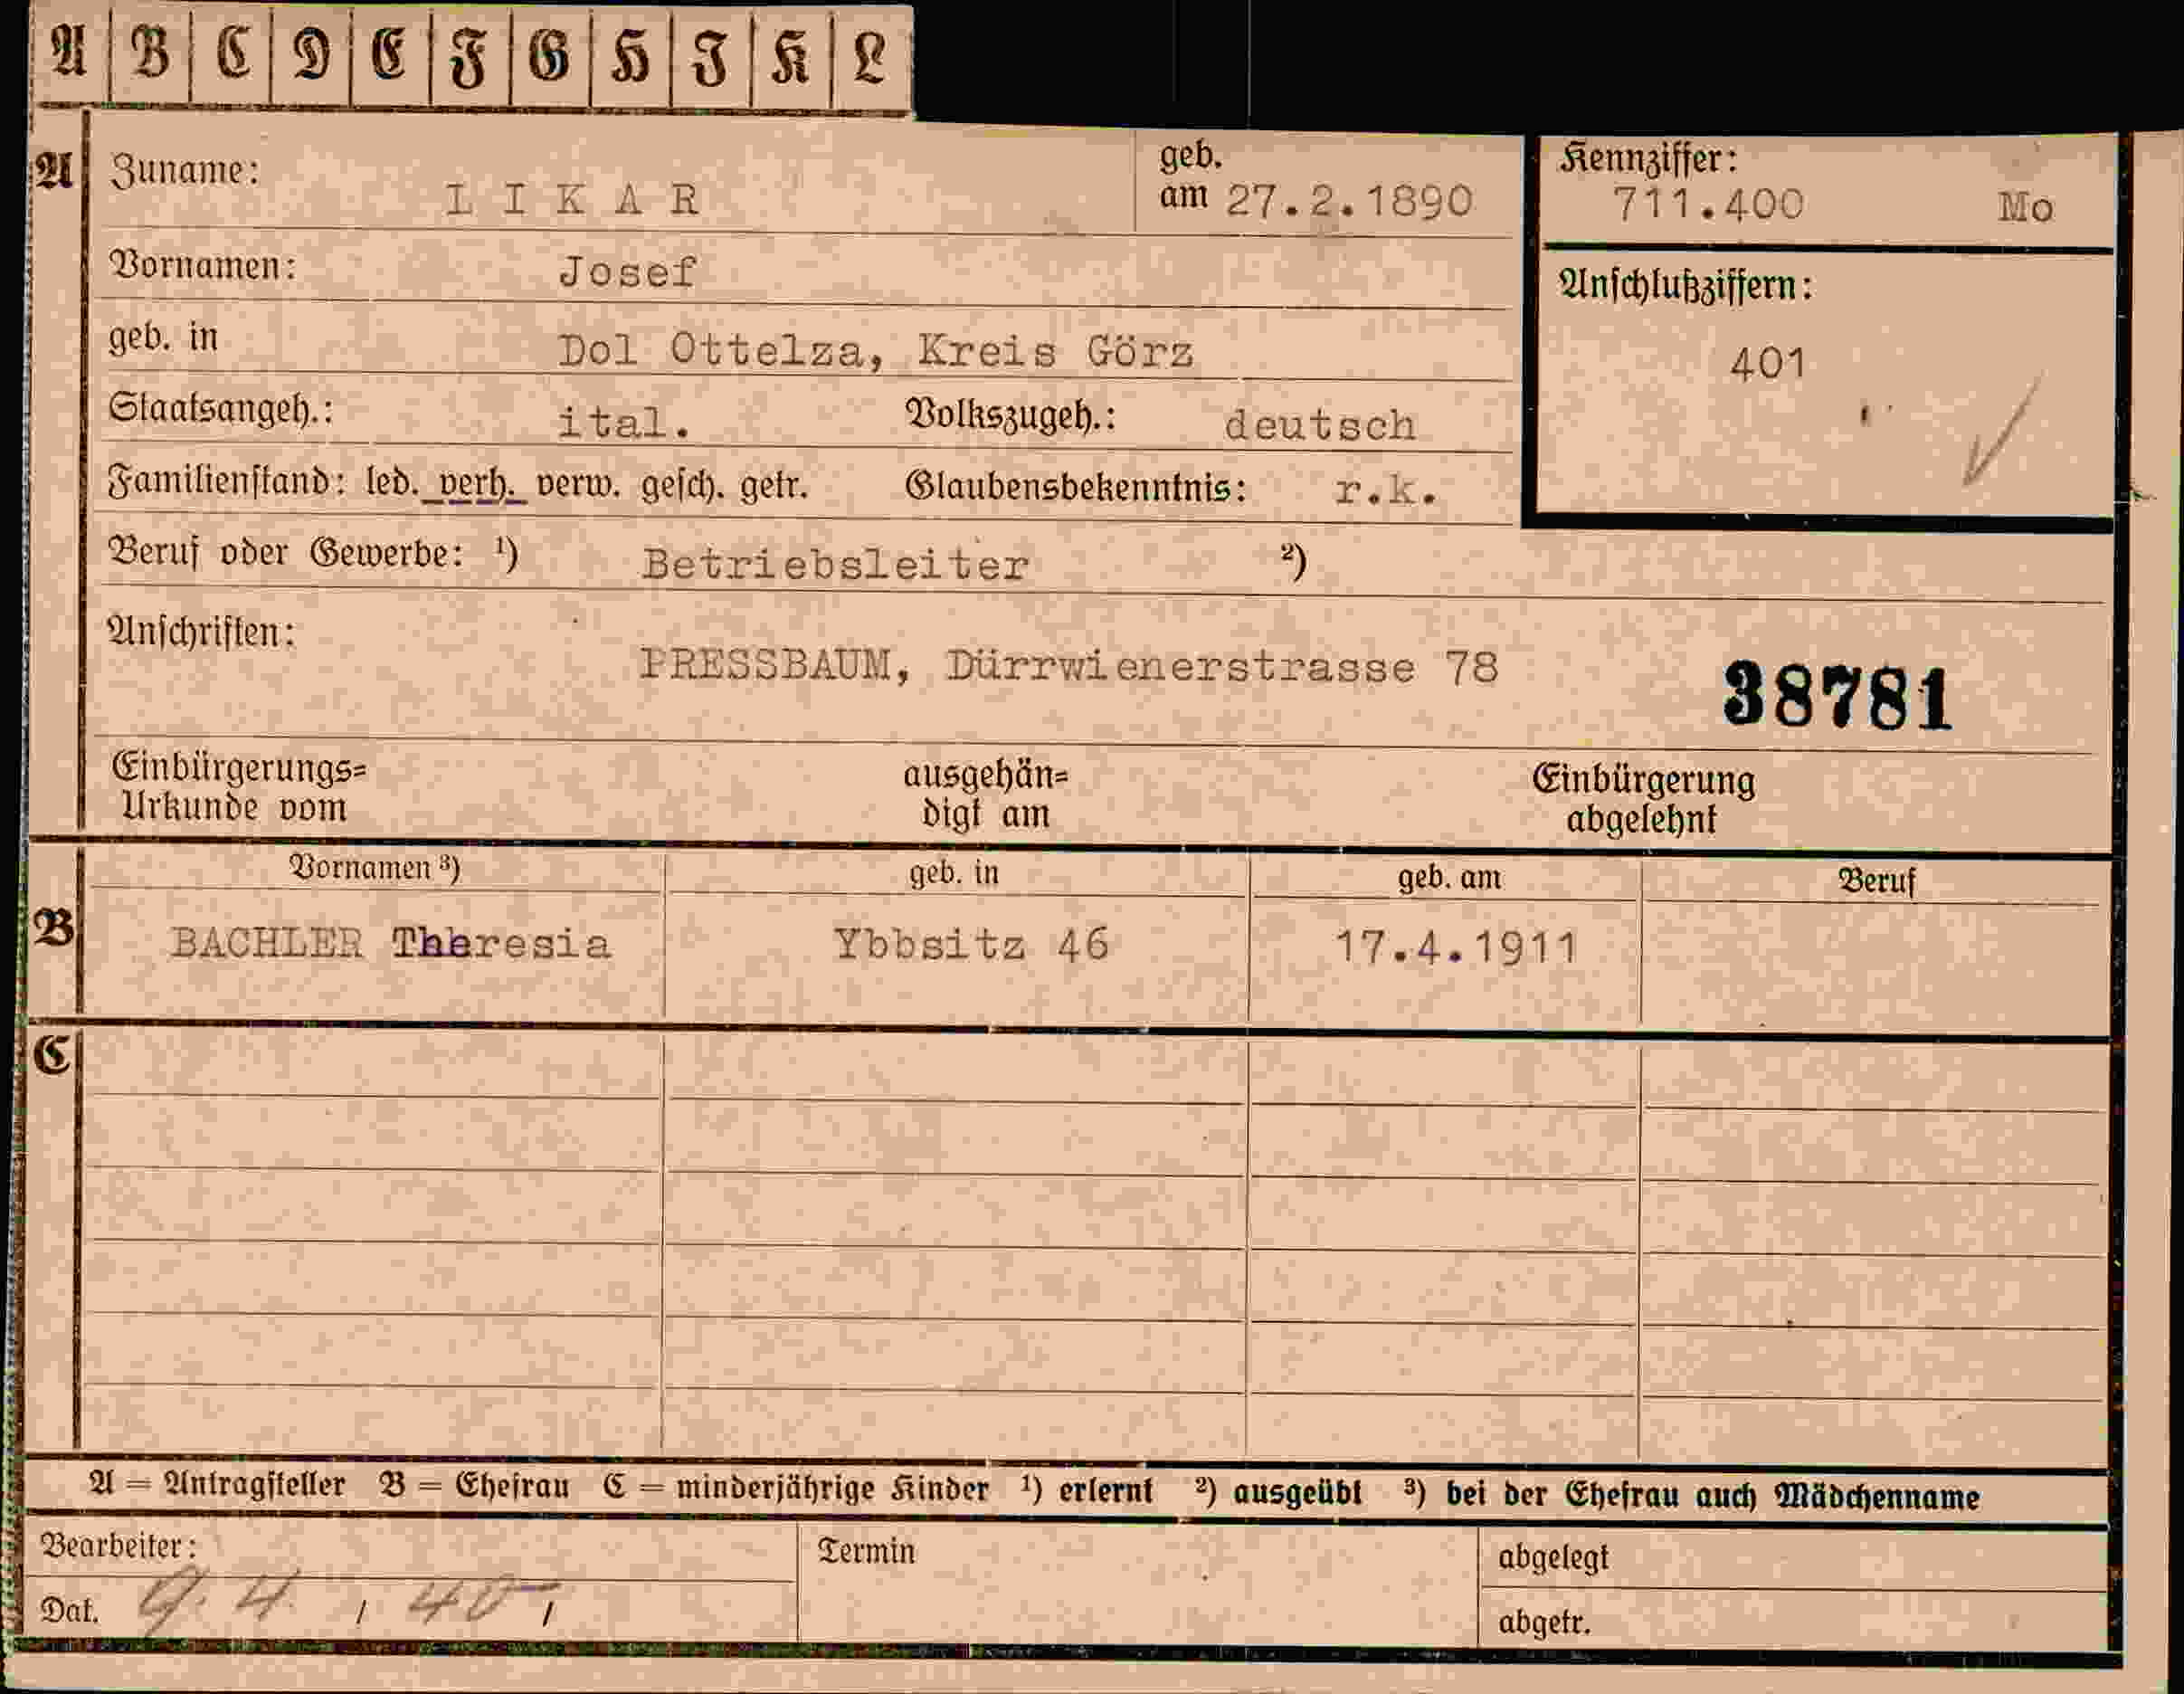 A B C D E F G H J K L
A Zuname: LIKAR geb. am 27.2.1890 Kennziffer: 711.400 Mo
Vornamen: Josef
Anschlußziffern:
geb. in Dol Ottelza, Kreis Görz
401
Staatsangeh.: ital. Volkszugeh.: deutsch
Familienstand: led. verh. verw. gesch. getr. Glaubensbekenntnis: r.k.
Beruf oder Gewerbe: ¹) Betriebsleiter ²)
Anschriften: PRESSBAUM, Dürrwienerstrasse 78
38781
Einbürgerungs= ausgehän= Einbürgerung
Urkunde vom digt am abgelehnt
Vornamen ³) geb. in geb. am Beruf
B BACHLER Theresia Ybbsitz 46 17.4.1911
C
A = Antragsteller B = Ehefrau C = minderjährige Kinder ¹) erlernt ²) ausgeübt ³) bei der Ehefrau auch Mädchenname
Bearbeiter: Termin abgelegt
Dat. 9. 4. 40 abgetr.